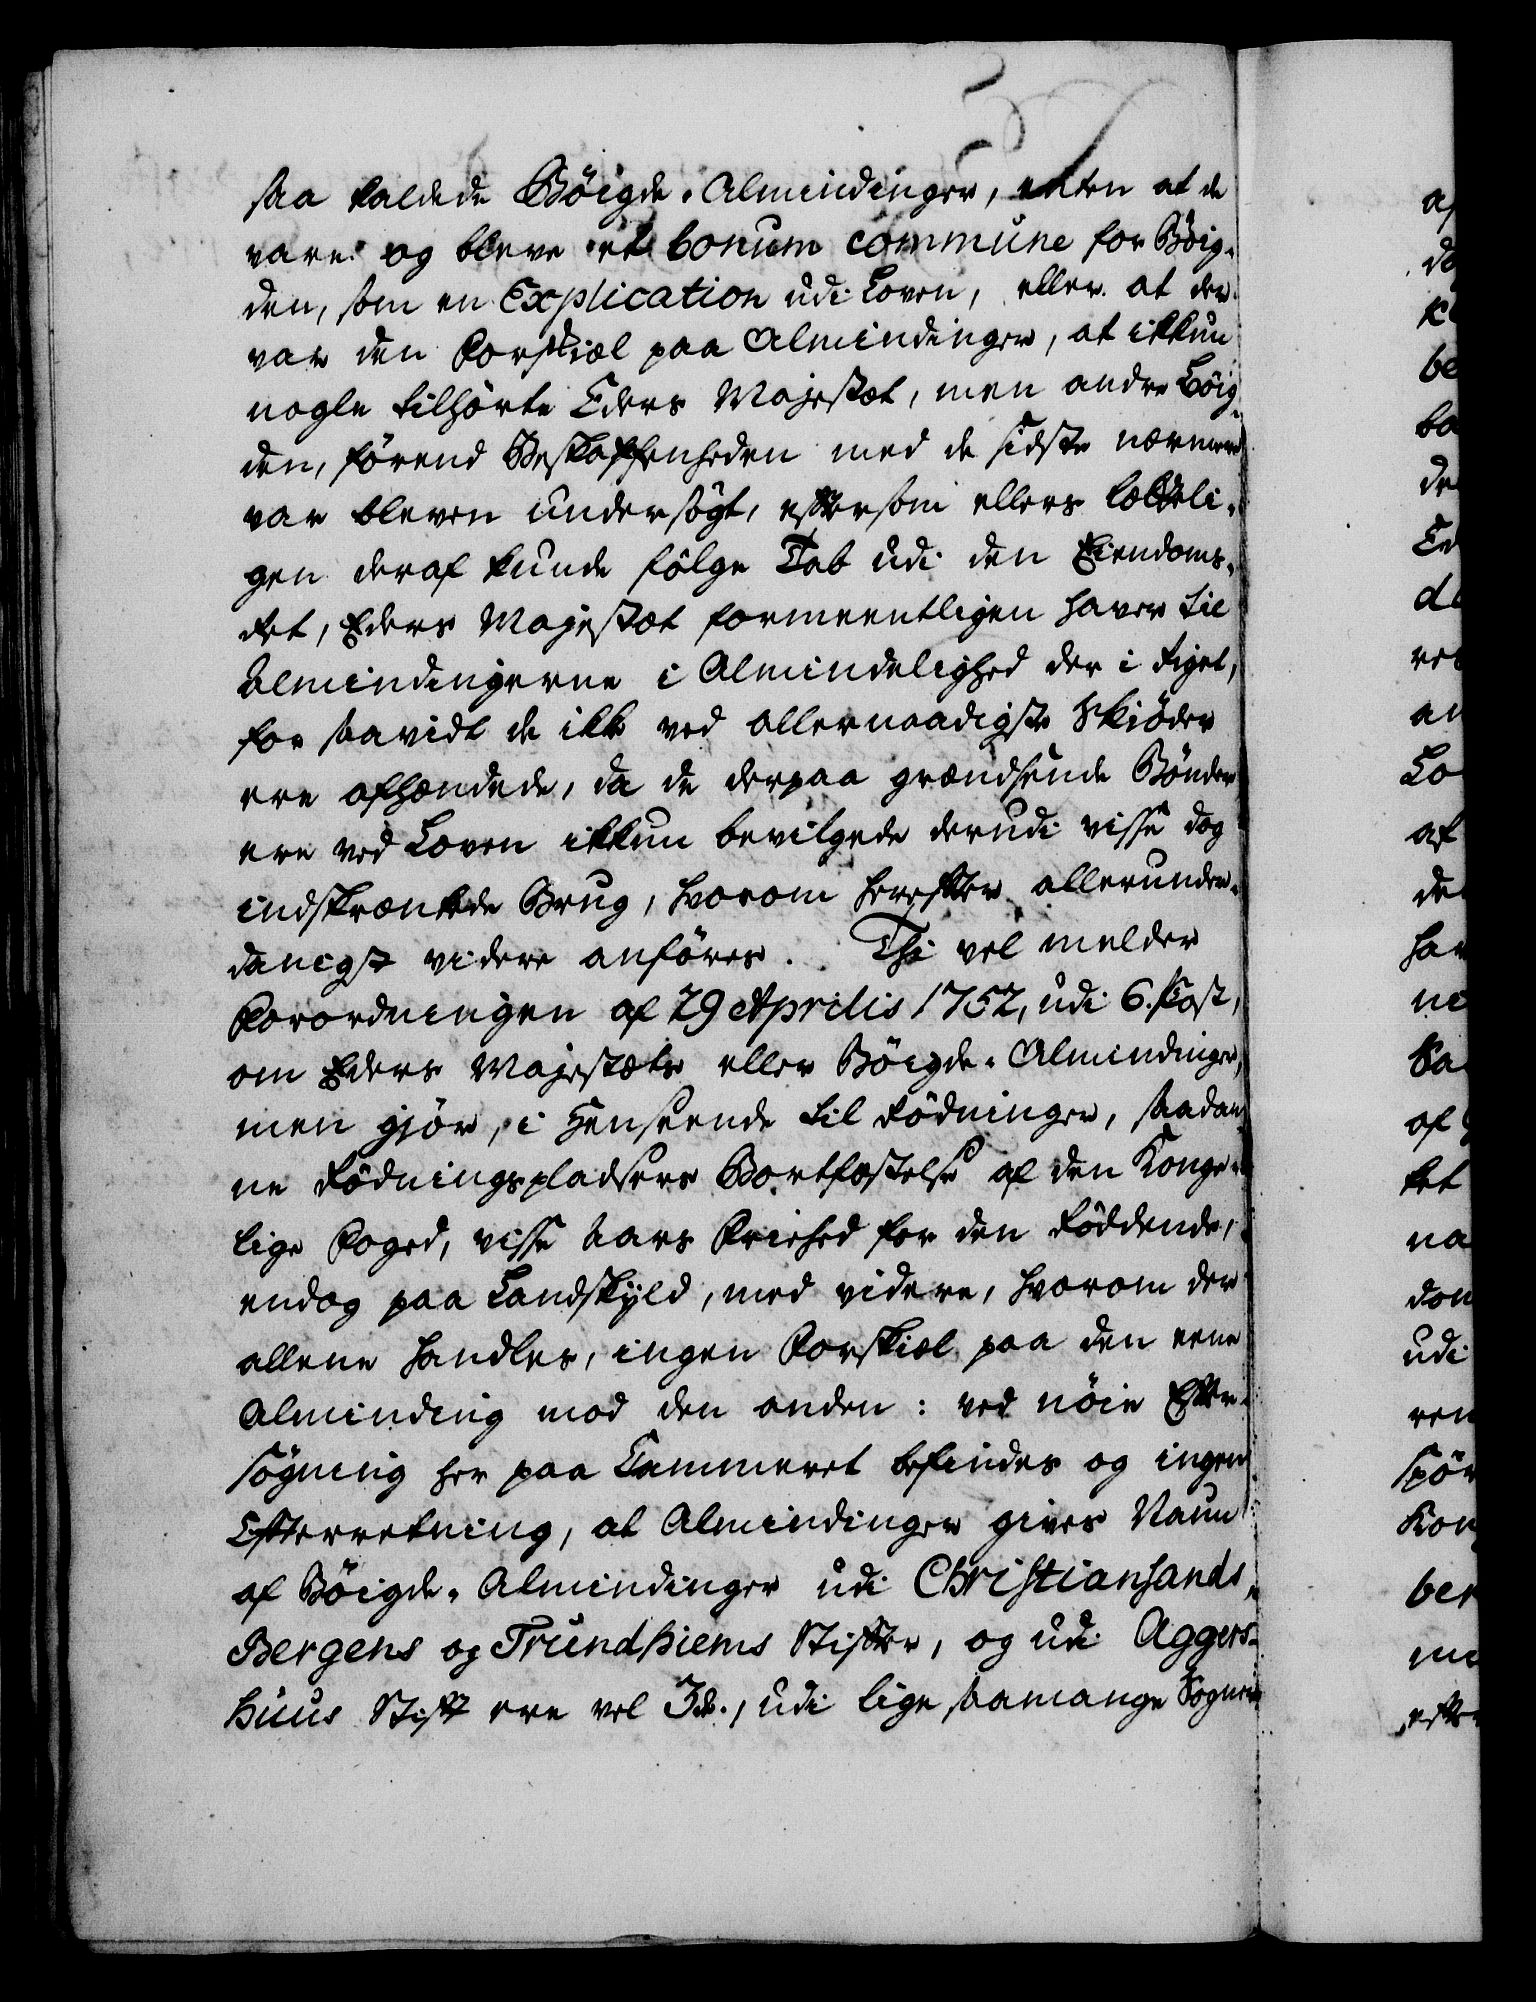 saa kaldede Böigde-Almindinger, enten at de
vare og bleve et bonum commune for Böig-
den, som en Explication udi Loven, eller at der
var den Forskiæl paa Almindinger, at ikkun
nogle tilhørte Eders Majestæt, men andre Böig-
den, förend Beskaffenheden med de sidste nærmere
var bleven undersögt, eftersom ellers lætteli-
gen deraf kunde fölge Tab udi den Eiendoms-
Ret, Eders Majestæt formeentligen haver til
Almindingerne i Almindelighed der i Riget,
for saavidt de ikke ved allernaadigste Skiöder
ere afhændede, da de derpaa grændsende Bönder
ere ved Loven ikkun bevilgede derudi visse dog
indskrænkede Brug, hvorom herefter allerunder-
danigst videre anföres. Thi vel melder
Forordningen af 29 Aprilis 1752, udi 6. Post,
om Eders Majestæts eller Böigde-Almindinger,
men gjör, i Henseende til Rödninger, saadan-
ne Rödningspladsers Bortfæstelse af den Konge-
lige Foged, visse Aars Friehed for den Röddende,
endog paa Landskyld, med videre, hvorom der
allene handles, ingen Forskiæl paa den eene
Alminding mod den anden: ved nöie Efter-
sögning her paa Cammeret befindes og ingen
Efterretning, at Almindinger gives Navn
af Böigde-Almindinger udi Christiansands,
Bergens og Trundhiems Stifter, og udi Aggers-
huus Stift ere vel 3de., udi lige saamange Sogne